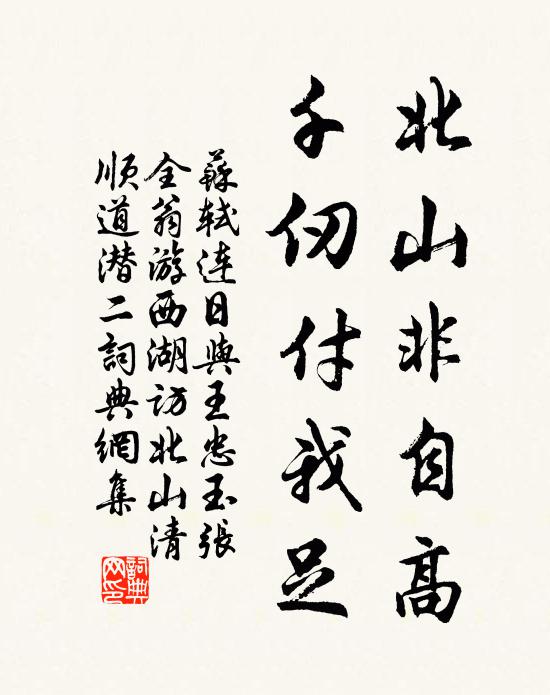 北山非自高
千仞付我足
蘇軾連日與王忠玉張
全翁游西湖訪北山清
順道潛二詞典網集
詞典网印